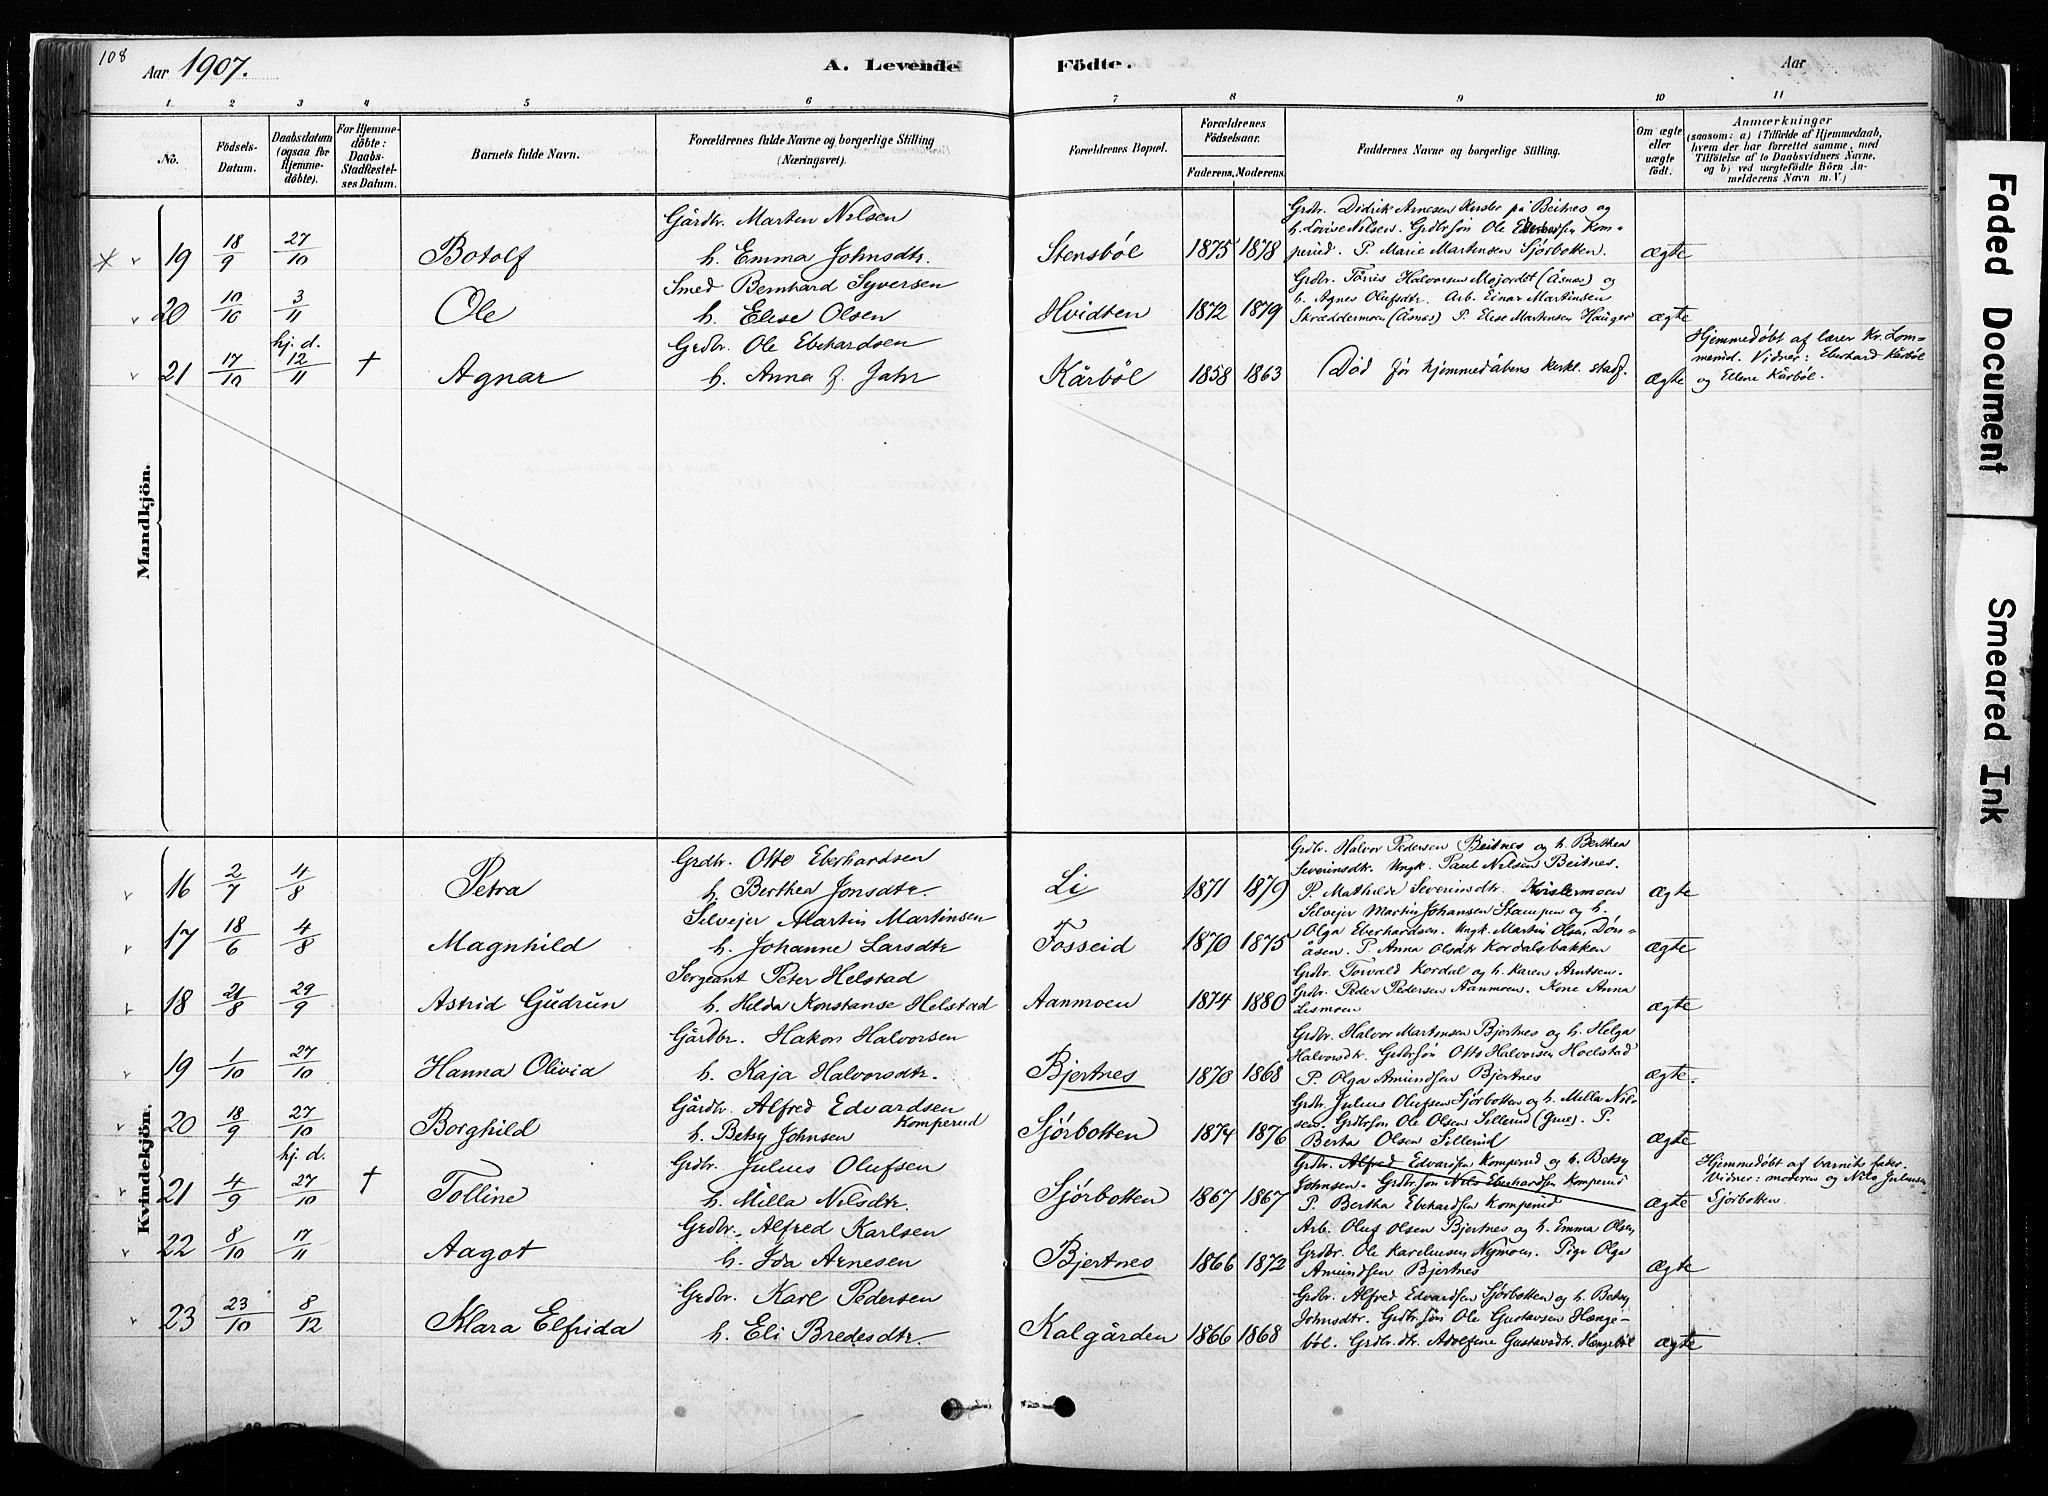 108
Aar 1907.
A. Levende
Födte.
Aar
1 2 3 4 5 6 7 8 9 10 11
No.
Födsels-Datum.
Daabsdatum (ogsaa for Hjemme-döbte).
For Hjemme-döbte: Daabs-Stadfæstel-ses Datum.
Barnets fulde Navn.
Forældrenes fulde Navne og borgerlige Stilling (Næringsvei).
Forældrenes Bopæl.
Forældrenes Födselsaar.
Faderens. Moderens.
Faddernes Navne og borgerlige Stilling.
Om ægte eller uægte födt.
Anmærkninger
(saasom: a) i Tilfælde af Hjemmedaab,
hvem der har forrettet samme, med
Tilföielse af to Daabsvidners Navne,
og b) ved uægtefödte Börn An-
melderens Navn m. V.)
Mandkjön.
Gårdbr. Marten Nilsen
Grdbr. Didrik Arnesen Kusler på Beitnes og
h. Lovise Nilsen. Grdbrsøn Ole Kom-
19 18/9 27/10 Botolf h. Emma Johnsdtr. Stensbøl 1875 1878 perud. P. Marie Martinsen Sjørbotten. ægte
Smed Bernhard Syversen
Grdbr. Tørris Halvorsen Mojordet (Åsnæs) og
h. Agnes Olufsdtr. Arb. Einar Martinsen
20 10/10 3/11 Ole h. Elise Olsen Hvidten 1872 1879 Skræddermoen (Åsnæs) P. Elise Martinsen Hauger ægte
hj. d.
Grdbr. Ole Eberhardsen
Hjemmedøbt af lærer Kr. Lom-
merud. Vidner: Eberhard Kårbøl
21 17/10 12/11 † Agnar h. Anna J. Jahr Kårbøl 1858 1863 Død før hjemmedåbens kirkl. stadf. ægte og Ellene Kårbøl.
Kvindekjön.
Grdbr. Otto Eberhardsen
Grdbr. Halvor Pedersen Beitnes og h. Berthea
Severinsdtr. Ungk. Paul Nilsen Beitnes.
16 2/7 4/8 Petra h. Berthea Jonsdtr. Li 1871 1879 P. Mathilde Severinsdtr. Kvislermoen ægte
Selvejer Martin Martinsen
Selvejer Martin Johansen Stampen og h.
Olga Eberhardsen. Ungk. Martin Olsen Døn-
17 18/6 4/8 Magnhild h. Johanne Larsdtr Fosseid 1870 1875 åsen. P. Anna Olsdtr Kordalsbakken ægte
Sergeant Peter Helstad
Grdbr. Torvald Kordal og h. Karen Arntsen.
Grdbr. Peder Pedersen Aanmoen. Kone Anna
18 21/8 29/9 Astrid Gudrun h. Hilda Konstanse Helstad Aanmoen 1874 1880 Lismoen ægte
Gårdbr. Hakon Halvorsen
Grdbr. Halvor Martinsen Bjertnes og h. Helga
Halvorsdtr. Grdbrsøn Otto Halvorsen Hoelstad
19 1/10 27/10 Hanna Olivia h. Kaja Halvorsdtr. Bjertnes 1870 1868 P. Olga Amundsen Bjertnes ægte.
Gårdbr. Alfred Edvardsen Komperud
Grdbr. Julius Olufsen Sjørbotten og h. Milla Nil-
sen. Grdbrsøn Ole Olsen Sillerud (Grue). P.
20 18/9 27/10 Borghild h. Betsy Johnsen Sjørbotten 1874 1876 Berta Olsen Sillerud ægte
hj. d.
Grdbr. Julius Olufsen
Grdbr. Alfred Edvardsen Komperud og h. Betsy
Johnsen. Grdbrsøn Nils Eberhardsen Komperud
Hjemmedøbt af barnets fader.
Vidner: moderen og Nils Julusen
21 4/9 27/10 † Tolline h. Milla Nilsdtr. Sjørbotten 1867 1867 P. Bertha Eberhardsen Komperud ægte Sjørbotten.
Grdbr. Alfred Karlsen
Arb. Oluf Olsen Bjertnes og h. Emma Olsen,
Grdbr. Ole Karelusen Nymoen. Pige Olga
22 8/10 17/11 Aagot h. Ida Arnesen Bjertnes 1866 1872 Amundsen Bjertnes ægte
Grdbr. Karl Pedersen
Grdbr. Alfred Edvardsen Sjørbotten og h. Betsy
Johnsdtr. Grdbrsøn Ole Gustavsen Hænge-
23 23/10 8/12 Klara Elfrida h. Eli Bredesdtr. Kalgården 1866 1868 bøl. Grdbr.dtr. Adolfine Gustavsdtr. Hængebøl ægte
Faded Document
Smeared Ink